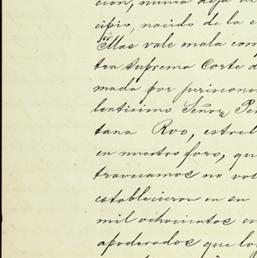 cion, nunca deja de
cipio, nacido de la e
"Mas vale mala com
tra Suprema Corte d
mada por juriscon
lentisimo Señor, Pe
tana Roo, estrel
en nuestro foro, qu
travesamos no vol
establecieron en su
mil ochocientos en
apoderados que lo